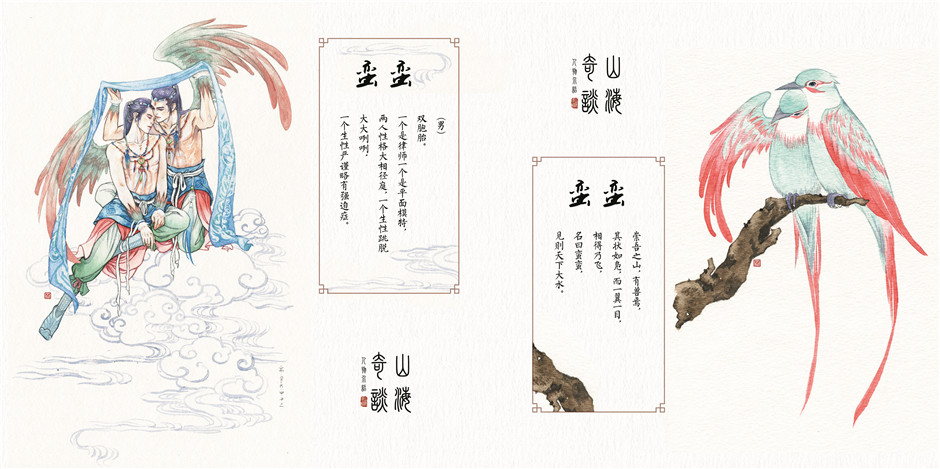 蛮蛮
(男)
双胞胎。
一个是律师一个是平面模特，
两人性格大相径庭，一个生性跳脱
大大咧咧，
一个生性严谨略有强迫症。
山海
奇談
山海
奇談
蛮蛮
崇吾之山，有兽焉，
其状如凫，而一翼一目，
相得乃飞，
名曰蛮蛮，
见则天下大水。